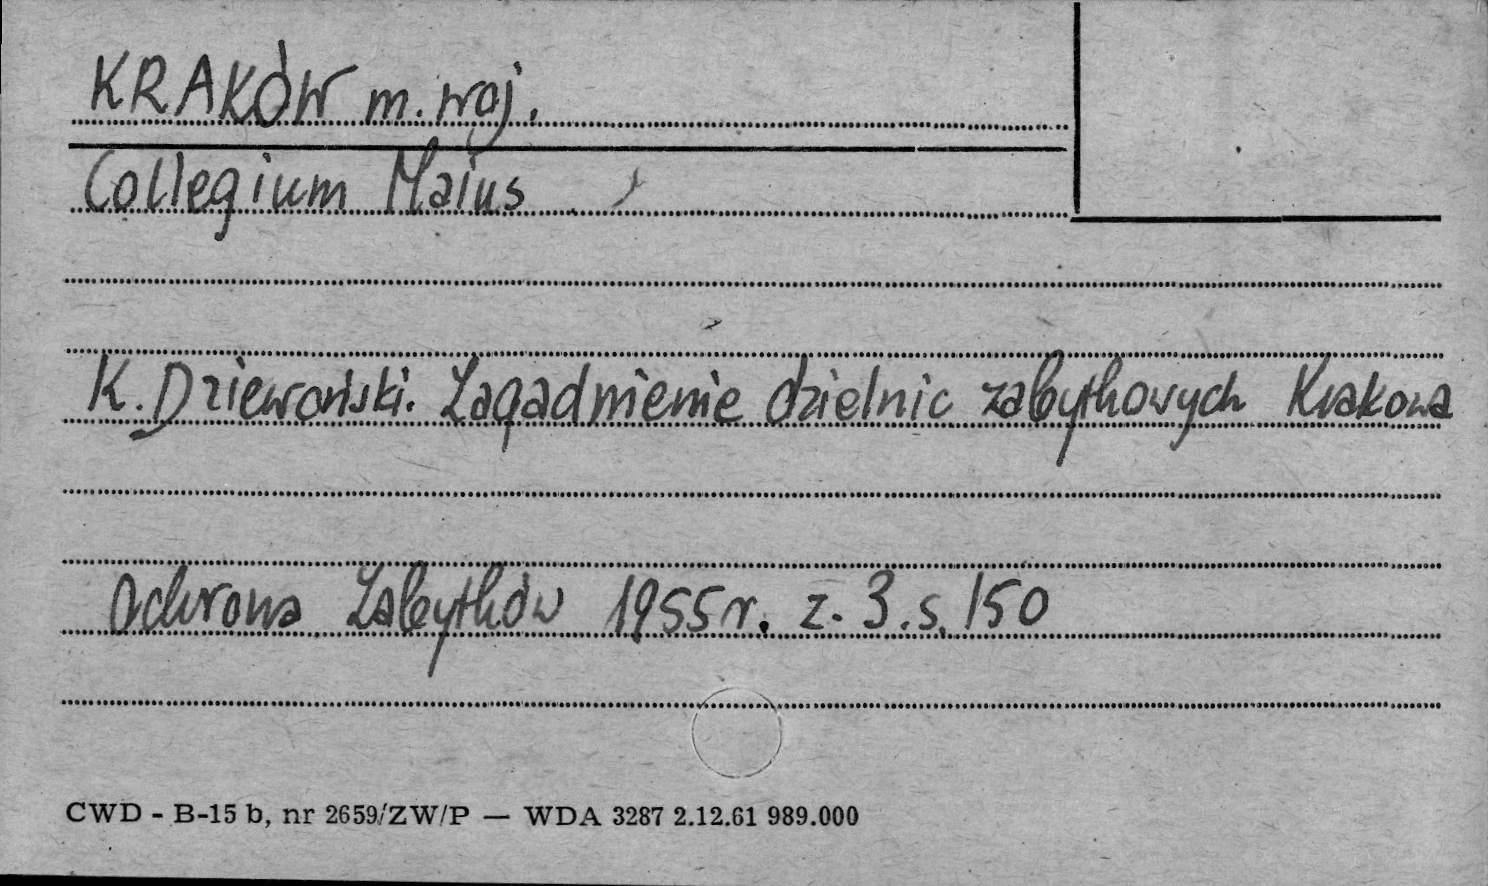 KRAKÓW m. woj.
Collegium Maius
K. Dziewoński. Zagadnienie dzielnic zabytkowych Krakowa
Ochrona Zabytków 1955 r. z. 3. s. 150
CWD - B-15 b, nr 2659/ZW/P — WDA 3287 2.12.61 989.000